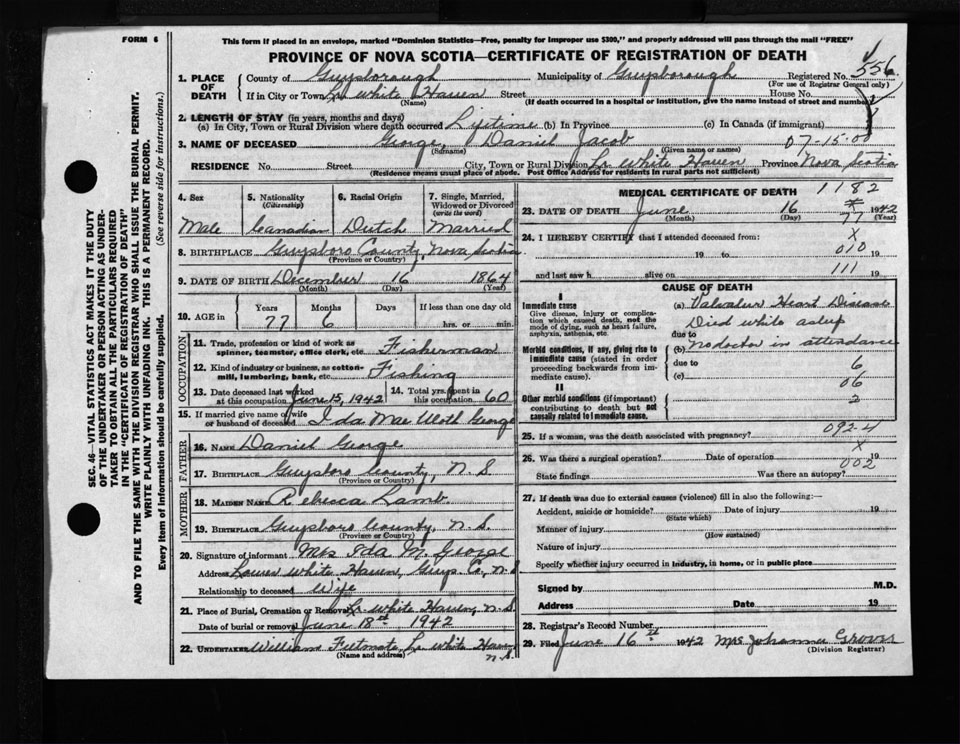 FORM 6
This form if placed in an envelope, marked "Dominion Statistics—Free, penalty for improper use $300," and properly addressed will pass through the mail "FREE"
PROVINCE OF NOVA SCOTIA—CERTIFICATE OF REGISTRATION OF DEATH
1. PLACE OF DEATH
County of Guysborough Municipality of Guysborough Registered No. 556
(For use of Registrar General only)
If in City or Town Lr White Haven Street House No.
(Name) (If death occurred in a hospital or institution, give the name instead of street and number)
2. LENGTH OF STAY (in years, months and days)
(a) In City, Town or Rural Division where death occurred Lifetime (b) In Province (c) In Canada (if immigrant)
3. NAME OF DECEASED George, Daniel Jacob 07-15-00
(Surname) (Given name or names)
RESIDENCE No. Street City, Town or Rural Division Lr White Haven Province Nova Scotia
(Residence means usual place of abode. Post Office Address for residents in rural parts not sufficient)
4. Sex
Male
5. Nationality (Citizenship)
Canadian
6. Racial Origin
Dutch
7. Single, Married, Widowed or Divorced (write the word)
Married
8. BIRTHPLACE Guysboro County, Nova Scotia
(Province or Country)
9. DATE OF BIRTH December 16 1864
(Month) (Day) (Year)
10. AGE in Years Months Days If less than one day old
77 6 hrs. or min.
OCCUPATION
11. Trade, profession or kind of work as spinner, teamster, office clerk, etc. Fisherman
12. Kind of industry or business, as cotton-mill, lumbering, bank, etc. Fishing
13. Date deceased last worked at this occupation June 15, 1942
14. Total yrs. spent in this occupation 60
15. If married give name of wife or husband of deceased Ida Mae Uloth George
FATHER
16. NAME Daniel George
17. BIRTHPLACE Guysboro County, N.S.
(Province or Country)
MOTHER
18. MAIDEN NAME Rebecca Lamb
19. BIRTHPLACE Guysboro County, N.S.
(Province or Country)
20. Signature of informant Mrs Ida M. George
Address Lower White Haven, Guys. Co., N.S
Relationship to deceased Wife
21. Place of Burial, Cremation or Removal Lr. White Haven, N.S.
Date of burial or removal June 18th 1942
22. UNDERTAKER William Lr White Haven N.S.
(Name and address)
MEDICAL CERTIFICATE OF DEATH 1182
23. DATE OF DEATH June 16 1942
(Month) (Day) (Year)
77
24. I HEREBY CERTIFY that I attended deceased from:
X
19 to 010 19
and last saw h alive on 111 19
CAUSE OF DEATH
I
Immediate cause
Give disease, injury or complication which caused death, not the mode of dying, such as heart failure, asphyxia, asthenia, etc.
(a) Valvular Heart Disease
Died while asleep
due to
Morbid conditions, if any, giving rise to immediate cause (stated in order proceeding backwards from immediate cause).
(b) no doctor in attendance
due to 6
(c) 06
II
Other morbid conditions (if important) contributing to death but not causally related to immediate cause.
2
25. If a woman, was the death associated with pregnancy? 092-4
X
26. Was there a surgical operation? Date of operation 19
002
State findings Was there an autopsy?
27. If death was due to external causes (violence) fill in also the following:—
Accident, suicide or homicide? Date of injury 19
(State which)
Manner of injury
(How sustained)
Nature of injury
Specify whether injury occurred in industry, in home, or in public place
Signed by M.D.
Address Date 19
28. Registrar's Record Number
29. Filed June 16th 1942 Mrs Johanna
(Division Registrar)
SEC. 46—VITAL STATISTICS ACT MAKES IT THE DUTY
OF THE UNDERTAKER OR PERSON ACTING AS UNDER-
TAKER TO OBTAIN ALL THE PARTICULARS REQUIRED
IN THE "CERTIFICATE OF REGISTRATION OF DEATH"
AND TO FILE THE SAME WITH THE DIVISION REGISTRAR WHO SHALL ISSUE THE BURIAL PERMIT.
WRITE PLAINLY WITH UNFADING INK. THIS IS A PERMANENT RECORD.
Every item of Information should be carefully supplied. (See reverse side for instructions.)